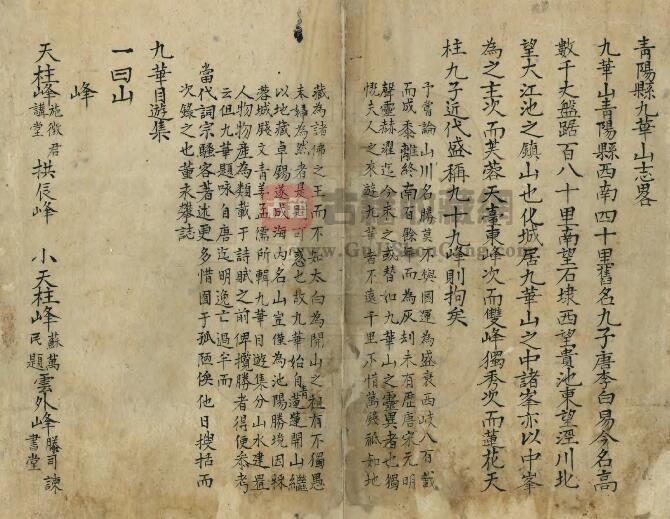 青陽縣九華山志畧
九華山青陽縣西南四十里舊名九子唐李白易今名高
數千丈盤踞百八十里南望石埭西望貴池東望涇川北
望大江池之鎮山也化城居九華山之中諸峯亦以中峯
為之主次而芙蓉天臺東峰次而雙峰獨秀次而蓮花天
柱九子近代盛稱九十九峰則拘矣
予嘗論山川名勝莫不與國運為盛衰西岐八百載
而成黍離終南百餘年而為灰刦未有歷唐宋元明
聲靈赫濯迄今未之或替如九華山之靈異者也獨
慨夫人之來遊九華者不遠千里不惜萬錢祗知地
藏為諸佛之王而不知太白為開山之祖有不獨愚
夫婦為然者是可惑也故九華始自青蓮開山繼
以地藏卓錫遂成海內名山豈僅為池陽勝境因採
蓉城賤文青羊孟儒所輯九華目遊集分山水建置
人物物產為類載于詩賦之前俾攬勝者得便參考
云但九華題咏自唐迄明逸亡過半而
當代詞宗騷客著述更多惜囿于孤陋俟他日搜括而
次錄之也董未攀誌
九華目遊集
一曰山
峰
天柱峰施徵君講堂 拱辰峰 小天柱峰蘇萬民題 雲外峰滕司諫書堂
古籍
古籍收藏網
www.GuJiShouCang.com